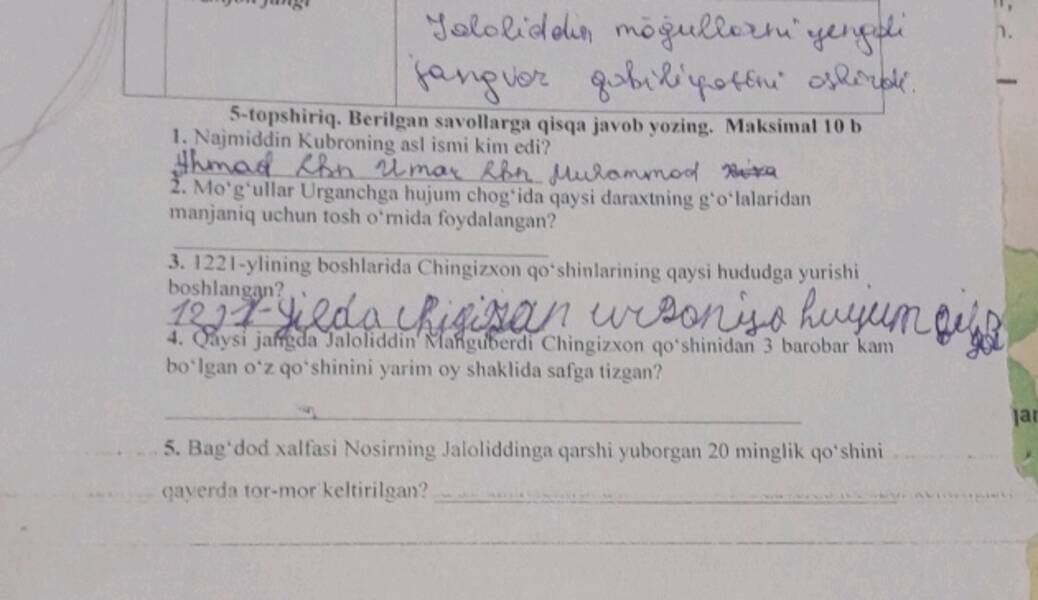 Jaloliddin mõğullarni yengdi
jangvor qobiliyatini oshirdi.
5-topshiriq. Berilgan savollarga qisqa javob yozing. Maksimal 10 b
1. Najmiddin Kubroning asl ismi kim edi?
Ahmad Ibn Umar Ibn Muhammad
2. Mo‘g‘ullar Urganchga hujum chog‘ida qaysi daraxtning g‘o‘lalaridan
manjaniq uchun tosh o‘rnida foydalangan?
3. 1221-ylining boshlarida Chingizxon qo‘shinlarining qaysi hududga yurishi
boshlangan?
1221-yilda hujum
4. Qaysi jangda Jaloliddin Manguberdi Chingizxon qo‘shinidan 3 barobar kam
bo‘lgan o‘z qo‘shinini yarim oy shaklida safga tizgan?
5. Bag‘dod xalfasi Nosirning Jaloliddinga qarshi yuborgan 20 minglik qo‘shini
qayerda tor-mor keltirilgan?